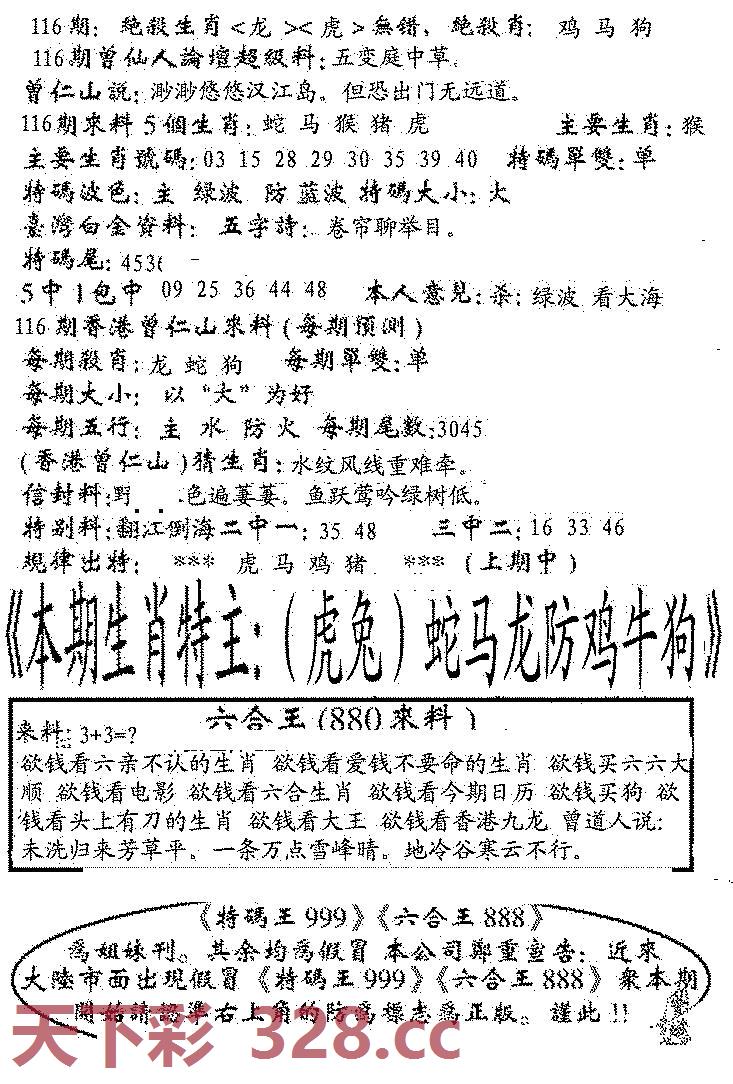 116期：絶殺生肖<龙><虎>無错，絶殺肖：鸡 马 狗
116期曾仙人論壇超級料：五变庭中草。
曾仁山説：渺渺悠悠汉江岛。但恐出门无远道。
116期來料5個生肖：蛇 马 猴 猪 虎 主要生肖：猴
主要生肖號碼：03 15 28 29 30 35 39 40 特碼單雙：单
特碼波色：主 绿波 防 蓝波 特碼大小：大
臺灣白金資料： 五字詩：卷帘聊举目。
特碼尾：4536
5中1包中 09 25 36 44 48 本人意見：杀：绿波 看大海
116期香港曾仁山來料(每期預測)
每期殺肖：龙 蛇 狗 每期單雙：单
每期大小： 以“大”为好
每期五行： 主 水 防 火 每期尾数：3045
(香港曾仁山)猜生肖：水纹风线重难牵。
信封料：野 色遍萋萋。鱼跃莺吟绿树低。
特别料：翻江倒海二中一：35 48 三中二：16 33 46
規律出特： *** 虎 马 鸡 猪 *** (上期中)
《本期生肖特主：(虎兔)蛇马龙防鸡牛狗》
六合王(880來料)
来料：3+3=?
欲钱看六亲不认的生肖 欲钱看爱钱不要命的生肖 欲钱买六六大
顺 欲钱看电影 欲钱看六合生肖 欲钱看今期日历 欲钱买狗 欲
钱看头上有刀的生肖 欲钱看大王 欲钱看香港九龙 曾道人说：
未洗归来芳草平。一条万点雪峰晴。地冷谷寒云不行。
《特碼王999》《六合王888》
為姐妹刊。其余均為假冒 本公司鄭重宣告：近來
大陸市面出現假冒《特碼王999》《六合王888》衆本期
開始請認準右上角的防偽標志為正版。謹此!!
天下彩 328.cc